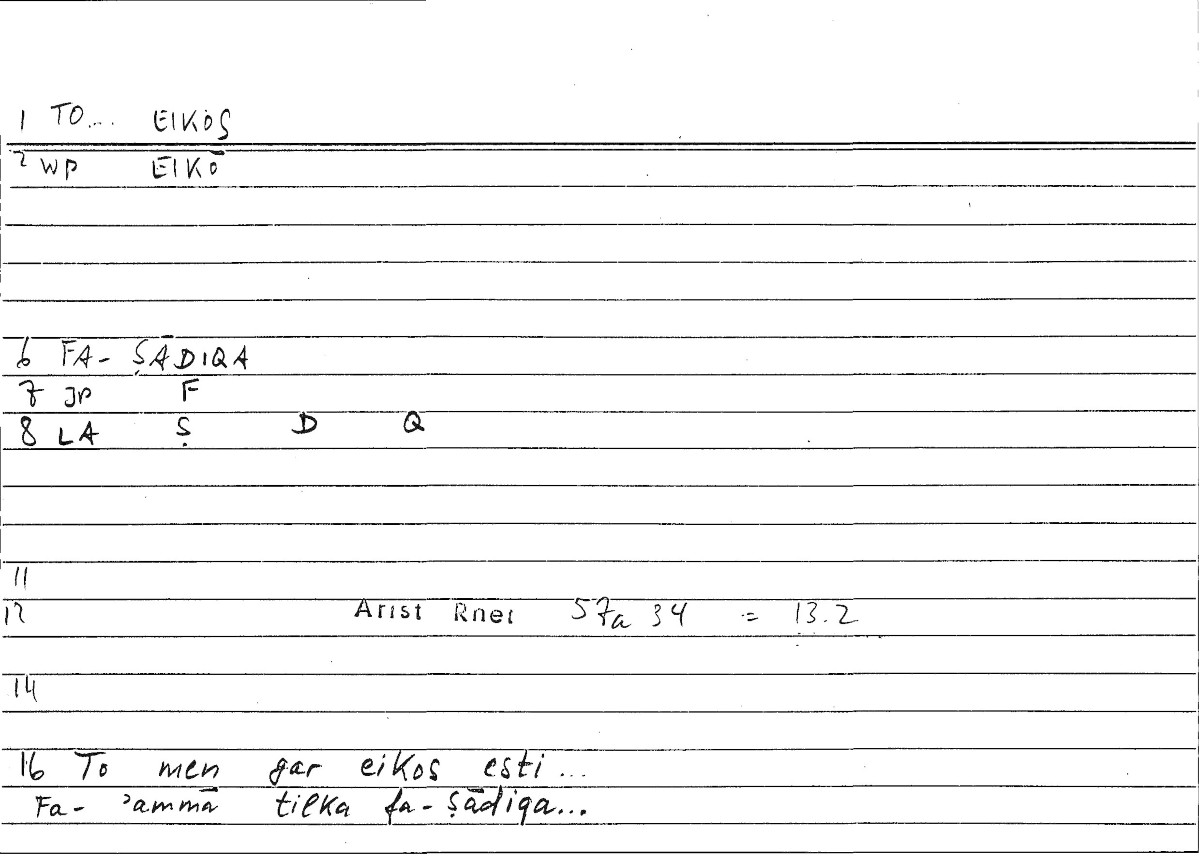 1 TO... EIKÒS
2 WP EIKŌ
6 FA- ṢĀDIQA
7 JP F
8 LA Ṣ D Q
11
12 Arist Rhet 57a 34 = 13.2
14
16 To men gar eikos esti...
Fa- ʾammā tilka fa-ṣādiqa...